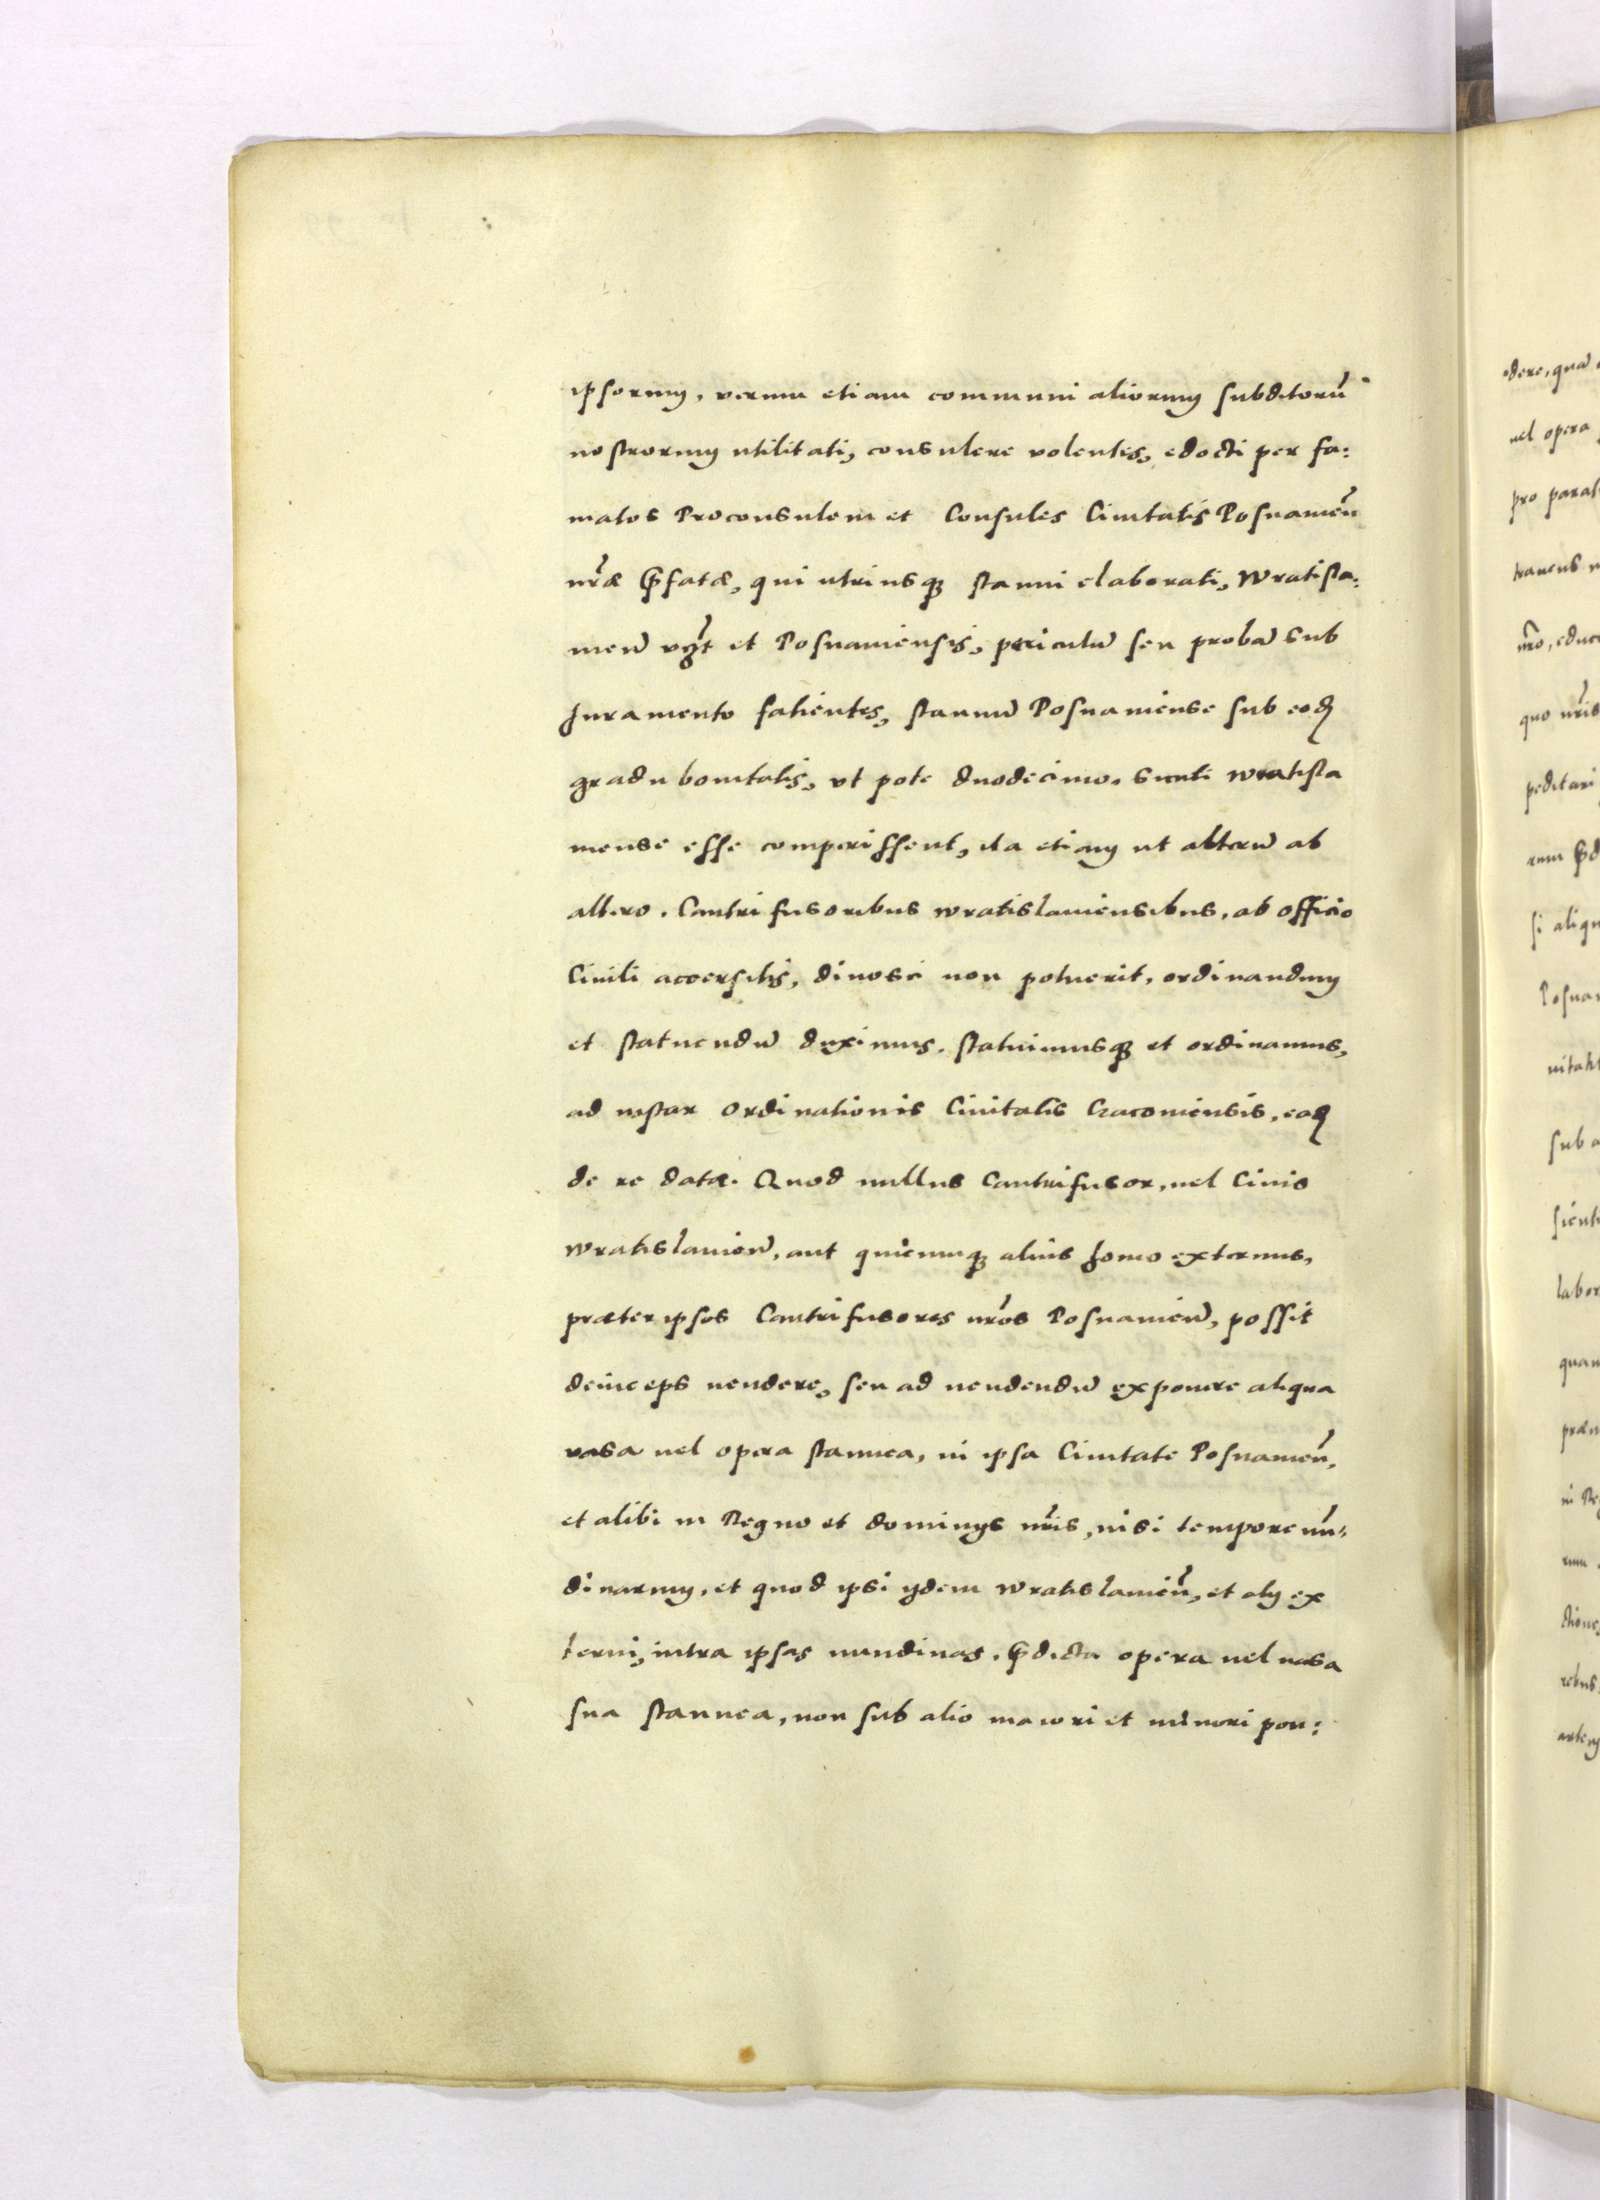 ipsorum, verum etiam communi aliorum subditorũ
nostrorum utilitati, consulere volentes, edocti per fa:
matos Proconsulem et Consules Civitatis Posnamẽn
nr̃æ p̃fatæ, qui utriusq; stanni elaborati, Wratisla:
vieñ vꝫt et Posnaniensis, periculũ seu probã sub
Juramento facientes, stannũ Posnaniense sub eodẽ
gradu bonitatis, vt pote duodecimo, sicuti wratisla
viense esse comperissent, ita etiam ut alterũ ab
altero, Cantrifusoribus wratislauiensibus, ab officio
Ciuili accersitis, dinosci non potuerit, ordinandum
et statuendũ duximus, statuimusq; et ordinamus,
ad instar Ordinationis Ciuitatis Cracouiensis, eadẽ
de re datæ. Quod nullus Cantrifusor, uel Ciuis
wratislauieñ, aut quicunq; alius homo externus,
præter ipsos Cantrifusores nr̃os Posnanieñ, possit
deinceps uendere, seu ad uendendũ exponere aliqua
vasa uel opera stannea, in ipsa Ciuitate Posnanieñ,
et alibi in Regno et dominijs nr̃is, nisi tempore nũ:
dinarum, et quod ipsi ijdem wratislauieñ, et alij ex
terni, intra ipsas nundinas, p̃dicta opera uel uasa
sua stannea, non sub alio maiori et minori pon: